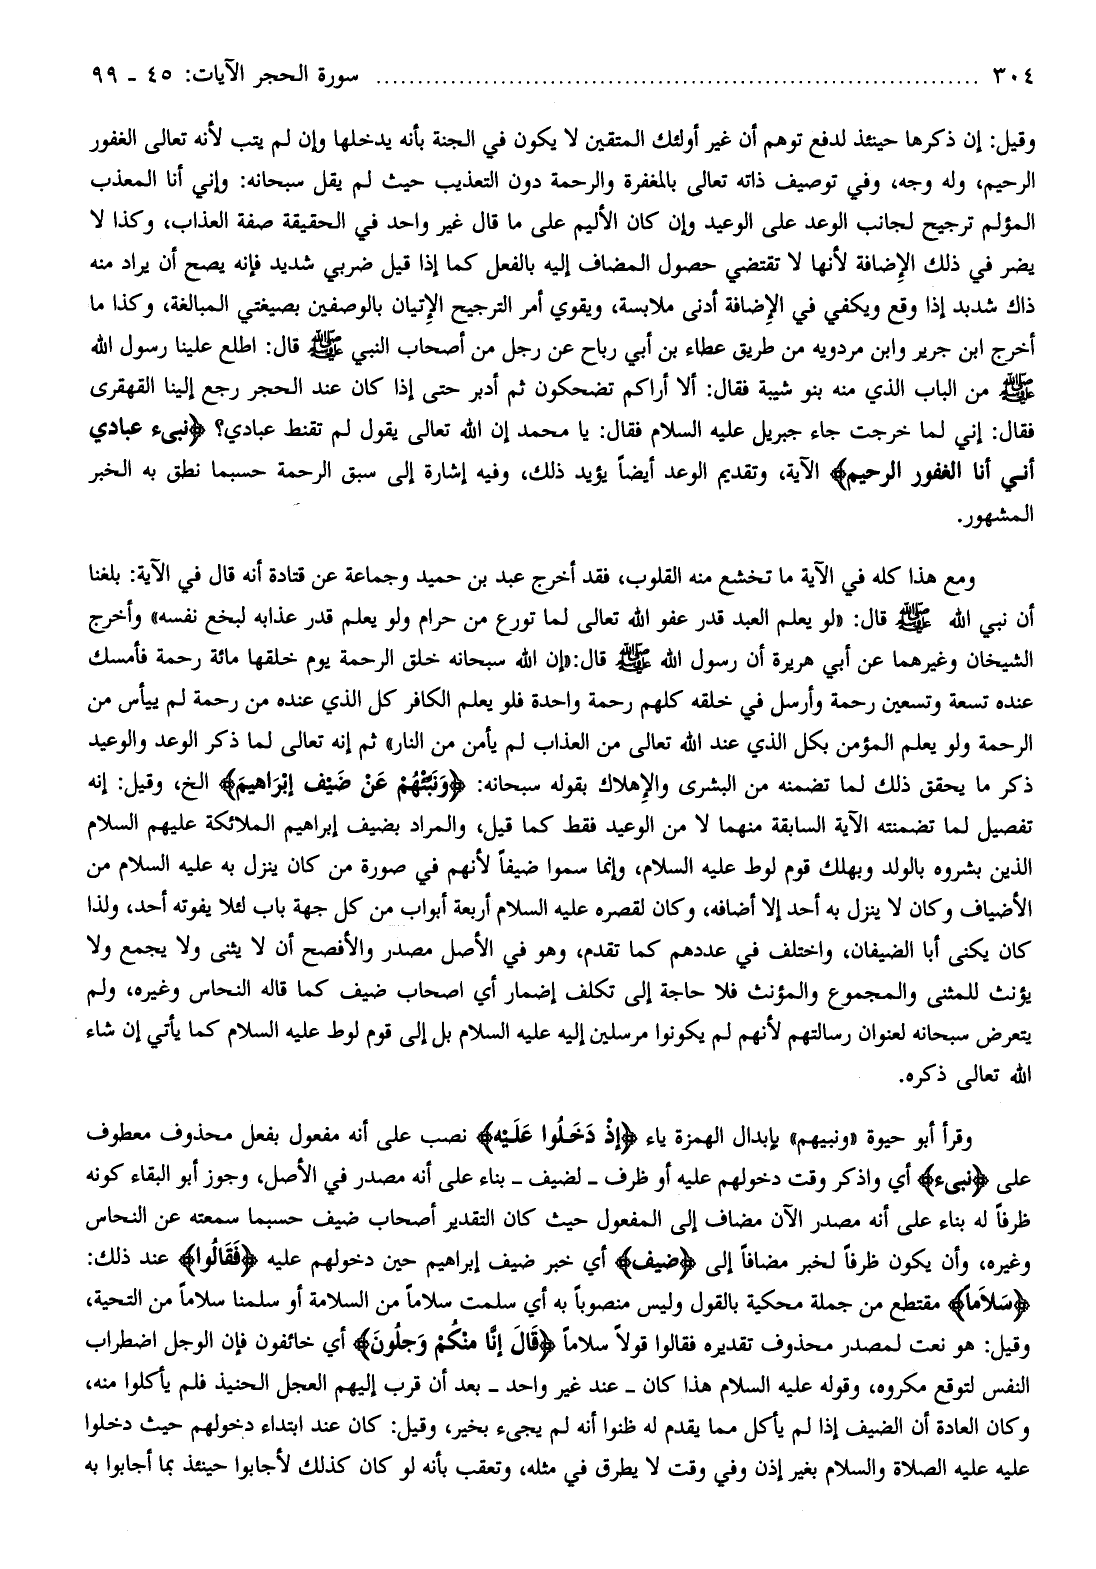 ٣٠٤ ........................................................................ سورة الحجر الآيات: ٤٥ ـ ٩٩
وقيل: إن ذكرها حينئذ لدفع توهم أن غير أولئك المتقين لا يكون في الجنة بأنه يدخلها وإن لم يتب لأنه تعالى الغفور
الرحيم، وله وجه، وفي توصيف ذاته تعالى بالمغفرة والرحمة دون التعذيب حيث لم يقل سبحانه: وإني أنا المعذب
المؤلم ترجيح لجانب الوعد على الوعيد وإن كان الأليم على ما قال غير واحد في الحقيقة صفة العذاب، وكذا لا
يضر في ذلك الإِضافة لأنها لا تقتضي حصول المضاف إليه بالفعل كما إذا قيل ضربي شديد فإنه يصح أن يراد منه
ذاك شديد إذا وقع ويكفي في الإِضافة أدنى ملابسة، ويقوي أمر الترجيح الإِتيان بالوصفين بصيغتي المبالغة، وكذا ما
أخرج ابن جرير وابن مردويه من طريق عطاء بن أبي رباح عن رجل من أصحاب النبي ﷺ قال: اطلع علينا رسول الله
ﷺ من الباب الذي منه بنو شيبة فقال: ألا أراكم تضحكون ثم أدبر حتى إذا كان عند الحجر رجع إلينا القهقرى
فقال: إني لما خرجت جاء جبريل عليه السلام فقال: يا محمد إن الله تعالى يقول لم تقنط عبادي؟ ﴿نبىء عبادي
أني أنا الغفور الرحيم﴾ الآية، وتقديم الوعد أيضاً يؤيد ذلك، وفيه إشارة إلى سبق الرحمة حسبما نطق به الخبر
المشهور.
ومع هذا كله في الآية ما تخشع منه القلوب، فقد أخرج عبد بن حميد وجماعة عن قتادة أنه قال في الآية: بلغنا
أن نبي الله ﷺ قال: «لو يعلم العبد قدر عفو الله تعالى لما تورع من حرام ولو يعلم قدر عذابه لبخع نفسه» وأخرج
الشيخان وغيرهما عن أبي هريرة أن رسول الله ﷺ قال:«إن الله سبحانه خلق الرحمة يوم خلقها مائة رحمة فأمسك
عنده تسعة وتسعين رحمة وأرسل في خلقه كلهم رحمة واحدة فلو يعلم الكافر كل الذي عنده من رحمة لم ييأس من
الرحمة ولو يعلم المؤمن بكل الذي عند الله تعالى من العذاب لم يأمن من النار» ثم إنه تعالى لما ذكر الوعد والوعيد
ذكر ما يحقق ذلك لما تضمنه من البشرى والإِهلاك بقوله سبحانه: ﴿وَنَبِّئْهُمْ عَنْ ضَيْفِ إبْرَاهيمَ﴾ الخ، وقيل: إنه
تفصيل لما تضمنته الآية السابقة منهما لا من الوعيد فقط كما قيل، والمراد بضيف إبراهيم الملائكة عليهم السلام
الذين بشروه بالولد وبهلك قوم لوط عليه السلام، وإنما سموا ضيفاً لأنهم في صورة من كان ينزل به عليه السلام من
الأضياف وكان لا ينزل به أحد إلا أضافه، وكان لقصره عليه السلام أربعة أبواب من كل جهة باب لئلا يفوته أحد، ولذا
كان يكنى أبا الضيفان، واختلف في عددهم كما تقدم، وهو في الأصل مصدر والأفصح أن لا يثنى ولا يجمع ولا
يؤنث للمثنى والمجموع والمؤنث فلا حاجة إلى تكلف إضمار أي اصحاب ضيف كما قاله النحاس وغيره، ولم
يتعرض سبحانه لعنوان رسالتهم لأنهم لم يكونوا مرسلين إليه عليه السلام بل إلى قوم لوط عليه السلام كما يأتي إن شاء
الله تعالى ذكره.
وقرأ أبو حيوة «ونبيهم» بإبدال الهمزة ياء ﴿إذْ دَخَلُوا عَلَيْه﴾ نصب على أنه مفعول بفعل محذوف معطوف
على ﴿نبىء﴾ أي واذكر وقت دخولهم عليه أو ظرف ـ لضيف ـ بناء على أنه مصدر في الأصل، وجوز أبو البقاء كونه
ظرفاً له بناء على أنه مصدر الآن مضاف إلى المفعول حيث كان التقدير أصحاب ضيف حسبما سمعته عن النحاس
وغيره، وأن يكون ظرفاً لخبر مضافاً إلى ﴿ضيف﴾ أي خبر ضيف إبراهيم حين دخولهم عليه ﴿فَقَالُوا﴾ عند ذلك:
﴿سَلاَماً﴾ مقتطع من جملة محكية بالقول وليس منصوباً به أي سلمت سلاماً من السلامة أو سلمنا سلاماً من التحية،
وقيل: هو نعت لمصدر محذوف تقديره فقالوا قولاً سلاماً ﴿قَالَ إنَّا منْكُمْ وَجلُونَ﴾ أي خائفون فإن الوجل اضطراب
النفس لتوقع مكروه، وقوله عليه السلام هذا كان ـ عند غير واحد ـ بعد أن قرب إليهم العجل الحنيذ فلم يأكلوا منه،
وكان العادة أن الضيف إذا لم يأكل مما يقدم له ظنوا أنه لم يجىء بخير، وقيل: كان عند ابتداء دخولهم حيث دخلوا
عليه عليه الصلاة والسلام بغير إذن وفي وقت لا يطرق في مثله، وتعقب بأنه لو كان كذلك لأجابوا حينئذ بما أجابوا به